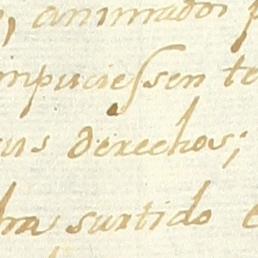 , animados p
mpuciessen te
us derechos;
ha surtido e